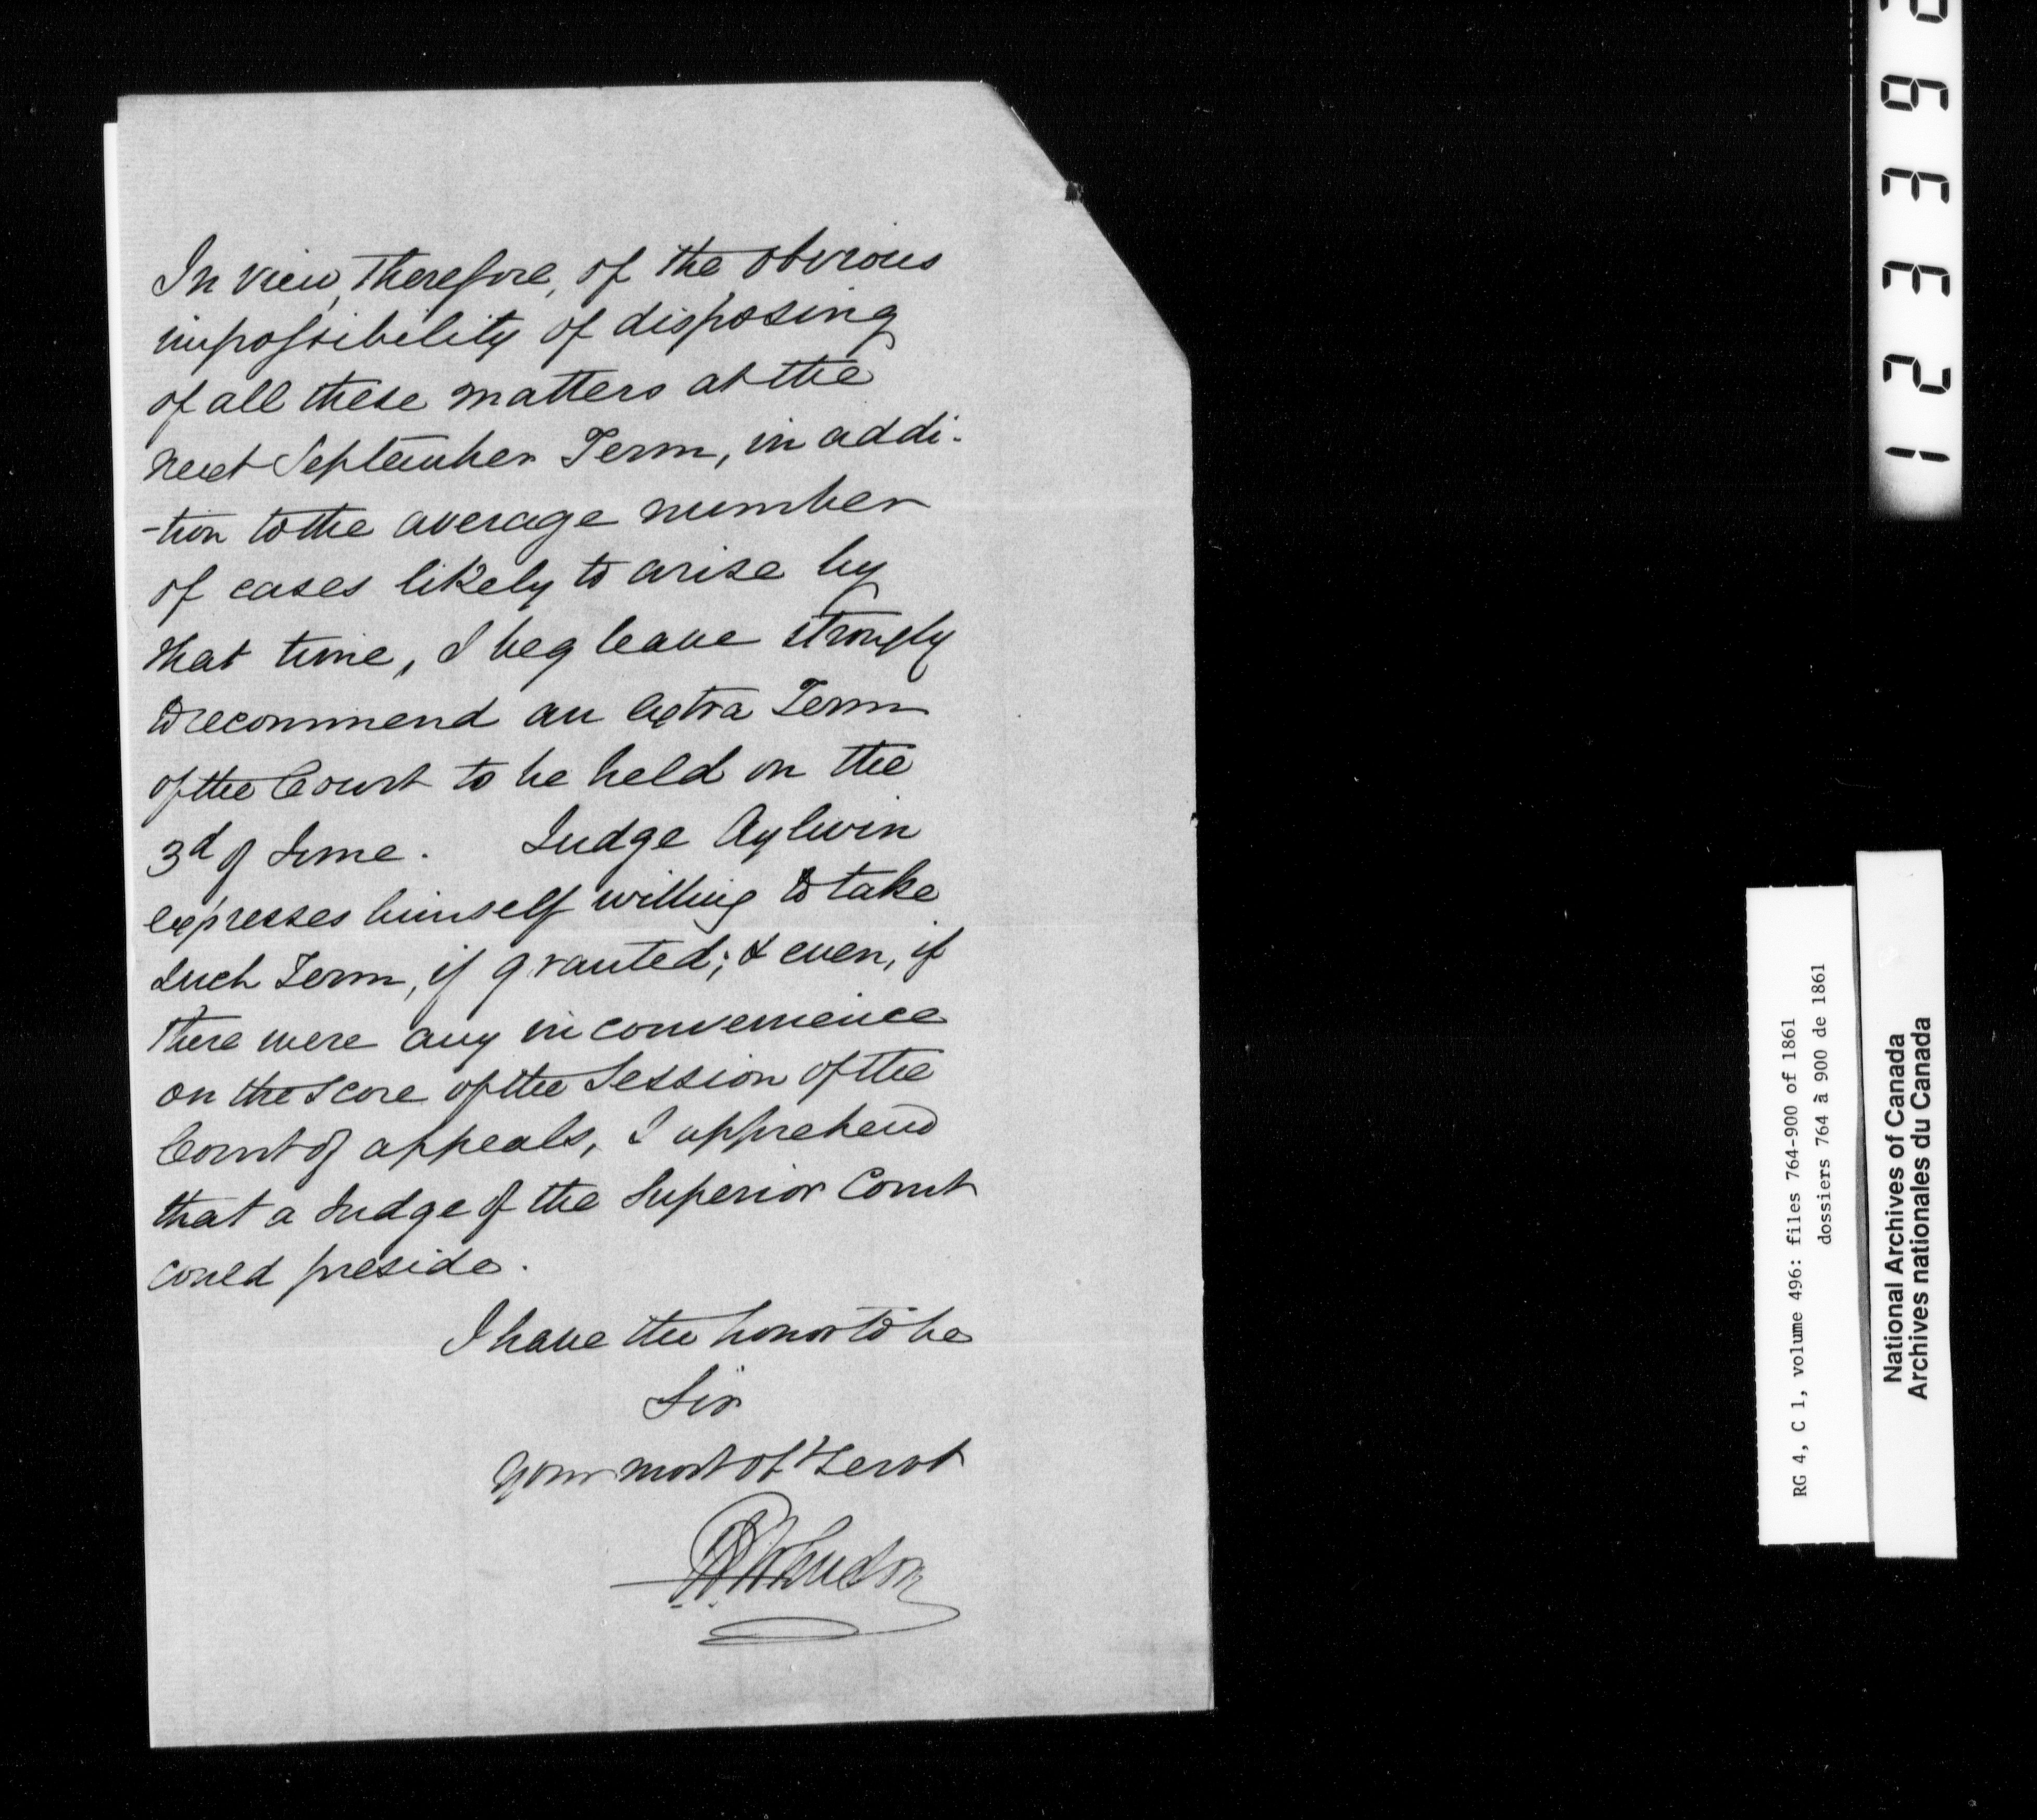 In view, therefore, of the obvious
impossibility of disposing
of all these matters at the
next September Term, in addi-
-tion to the average number
of cases likely to arise by
that time, I beg leave strongly
to recommend an extra Term
of the Court to be held on the
3d of June. Judge Aylwin
expresses himself willing to take
such Term, if granted; & even, if
there were any inconvenience
on the score of the Session of the
Court of appeals, I apprehend
that a Judge of the Superior Court
could preside.
I have the honor to be
Sir
Your most obt Servt
123392
RG 4, C 1, volume 496: files 764-900 of 1861
dossiers 764 à 900 de 1861
National Archives of Canada
Archives nationales du Canada